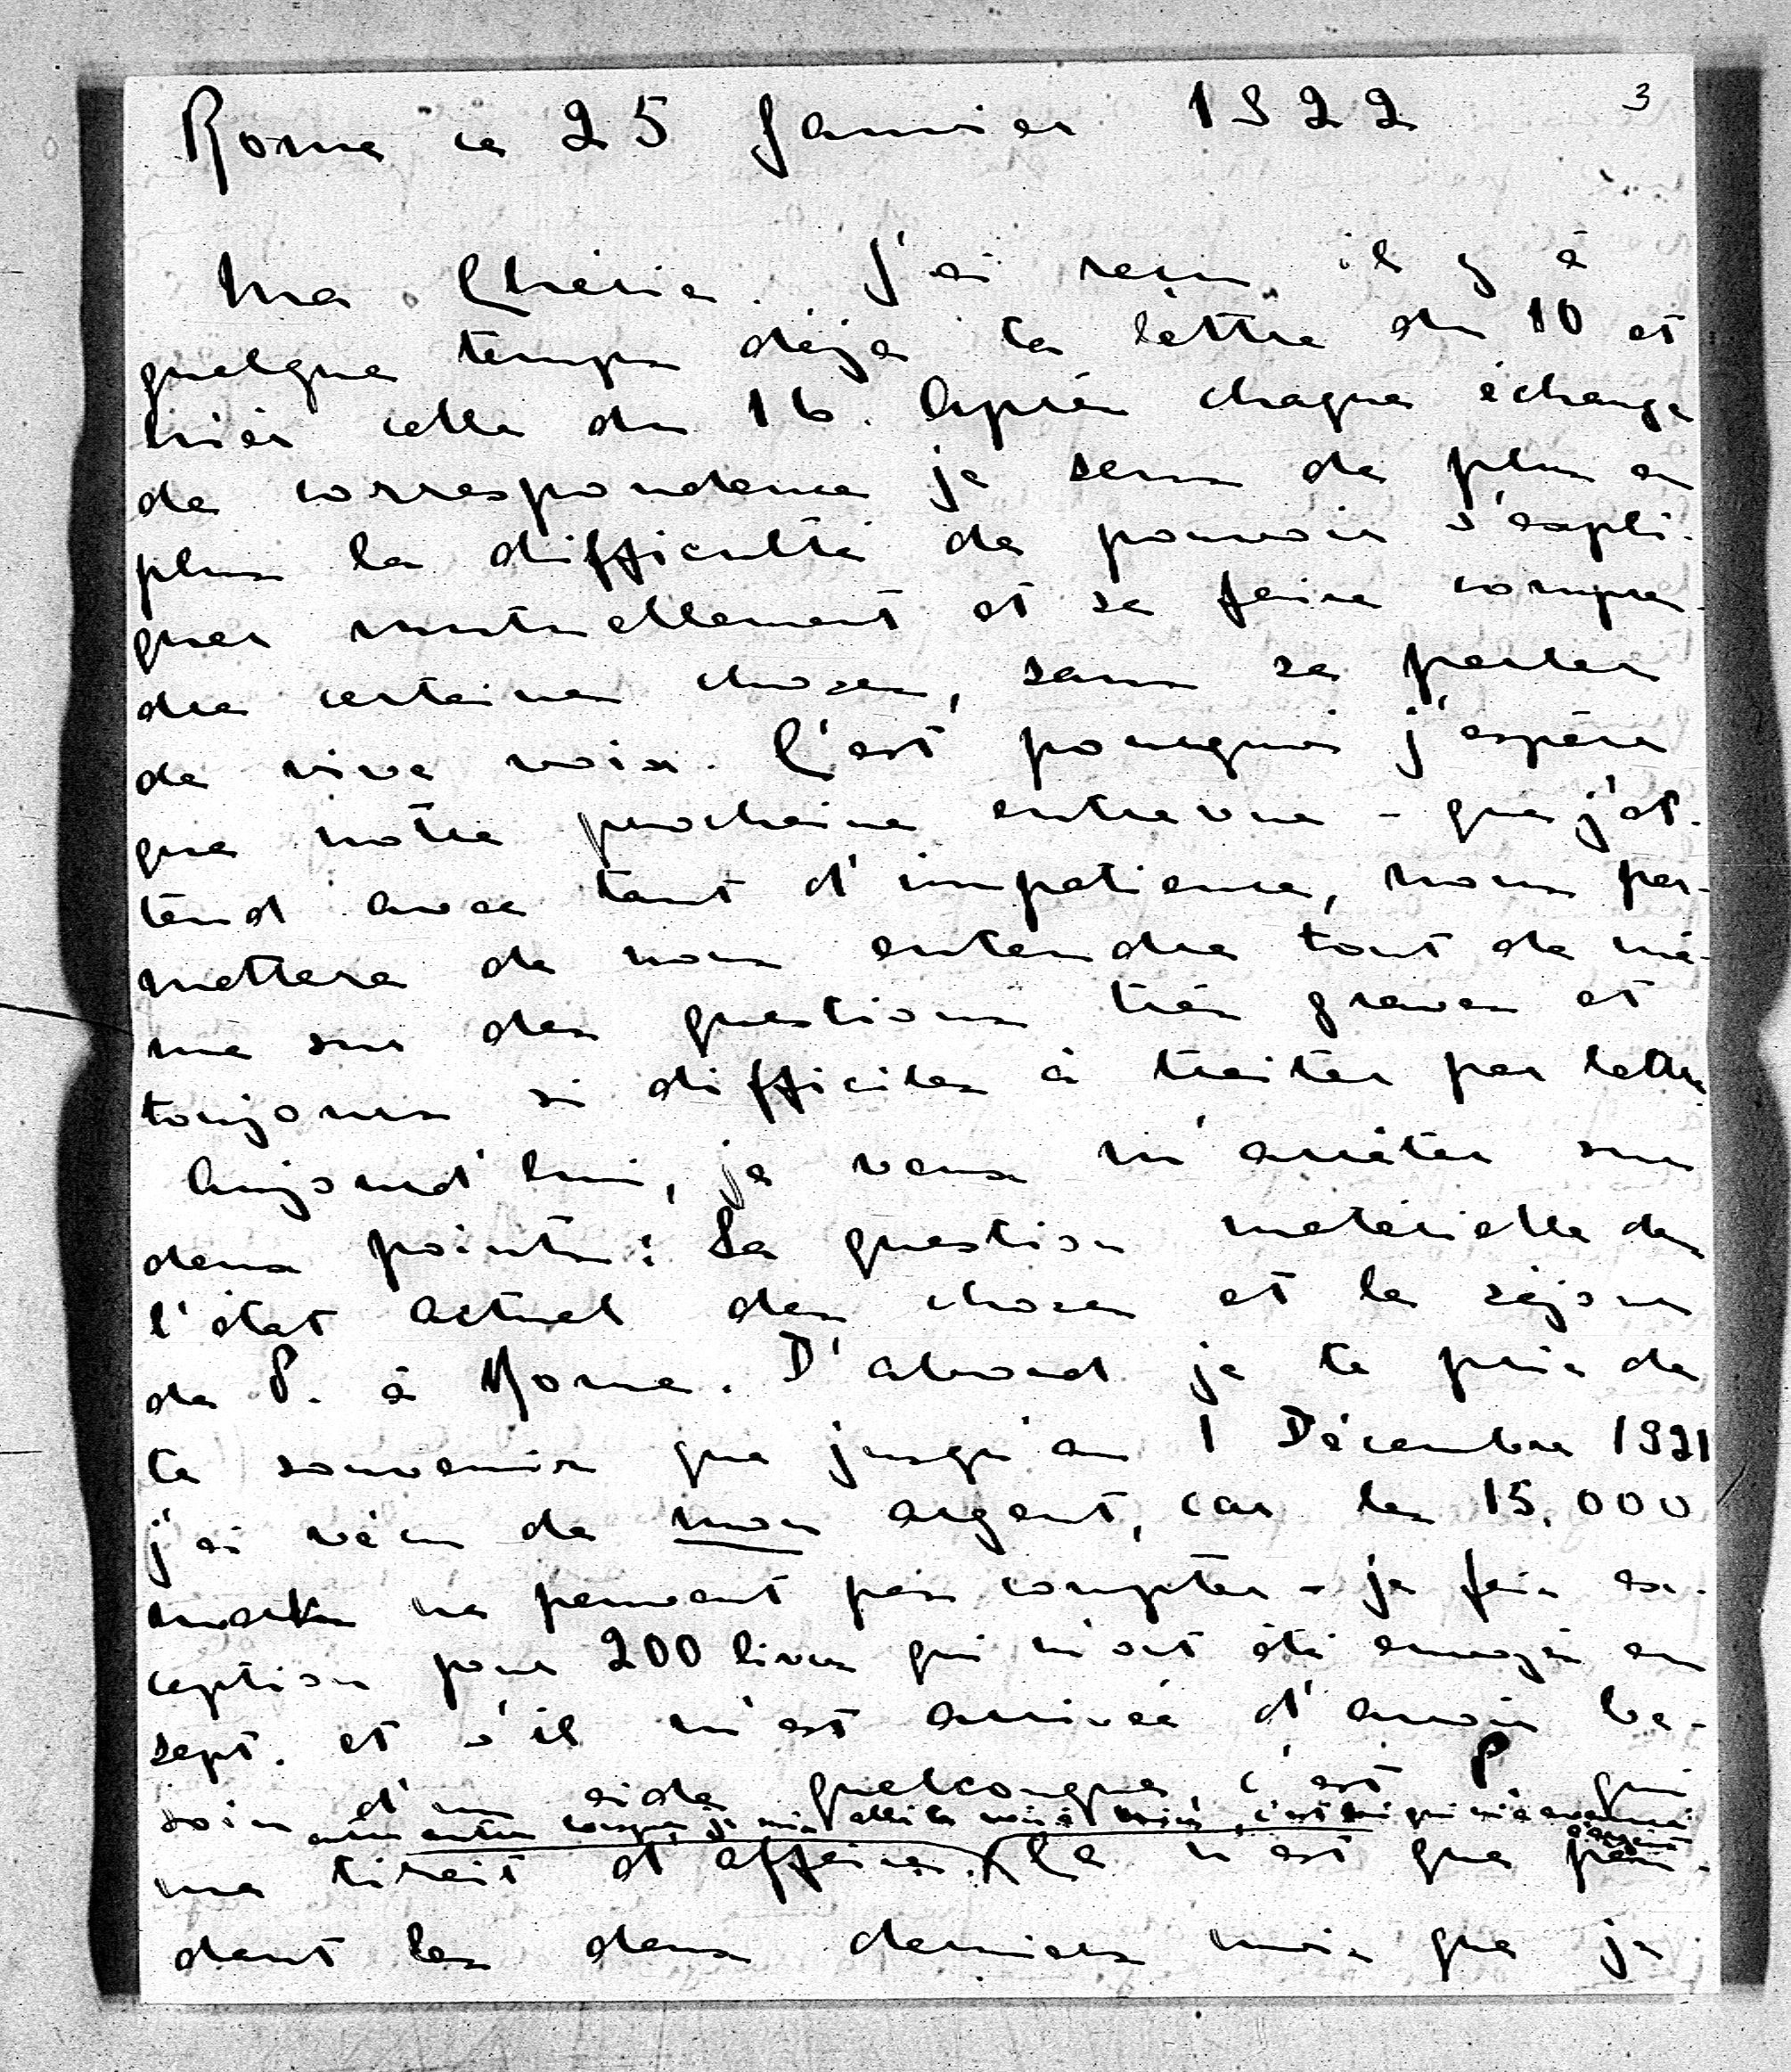 3
Rome ce 25 Janvier 1922
Ma Chérie. J'ai reçu il y a
quelque temps déjà ta lettre du 10 et
hier celle du 16. Après chaque échange
de correspondence je sens de plus en
plus la difficulté de pouvoir s'expli-
quer mutuellement et se faire compren-
dre certaines choses, sans se parler
de vive voix. C'est pourquoi j'espère
que notre prochaine entrevue - que j'at-
tend avec tant d'impatience, nous per-
mettera de nous entendre tout de mê-
me sur des questions très graves et
toujours si difficiles à traiter par lettre.
Aujourd'hui, je veux m'arrêter sur
deux points: La question matérielle dans
l'état actuel des choses et le séjour
de P. à Rome. D'abord je te prie de
te souvenir que jusqu'au 1 Décembre 1921
j'ai vécu de mon argent, car les 15,000
marks ne peuvent pas compter - je fais ex-
ception pour 200 livres qui m'ont été envoyé en
sept. et s'il m'est arrivée d'avoir be-
soin d'un aide quelconque c'est P. qui
entre autre lorsque je suis allé te voir à, c'est lui qui m'a avancé
d'argent
me tirait d'affaire. Ce n'est que pen-
dant les deux derniers mois que je